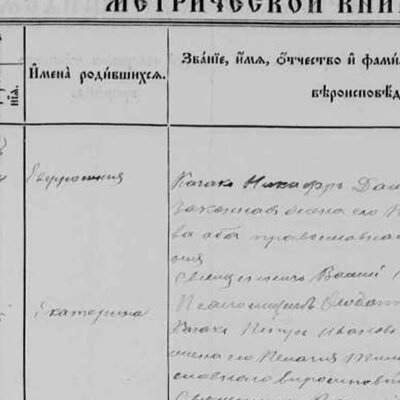 МЕТРИЧЕСКОЙ КНИ
Имена родившихся.
Званіе, имя, отчество и фами
вѣроисповѣд
нія.
Евфросинія
Казакъ Никифоръ Дан
Законная жена его
ва оба православна
Священникъ Василій
Екатерина
Псаломщикъ Ѳеодот
Казакъ Петръ Иванов
жена его Пелагія
славнаго вѣроисповѣ